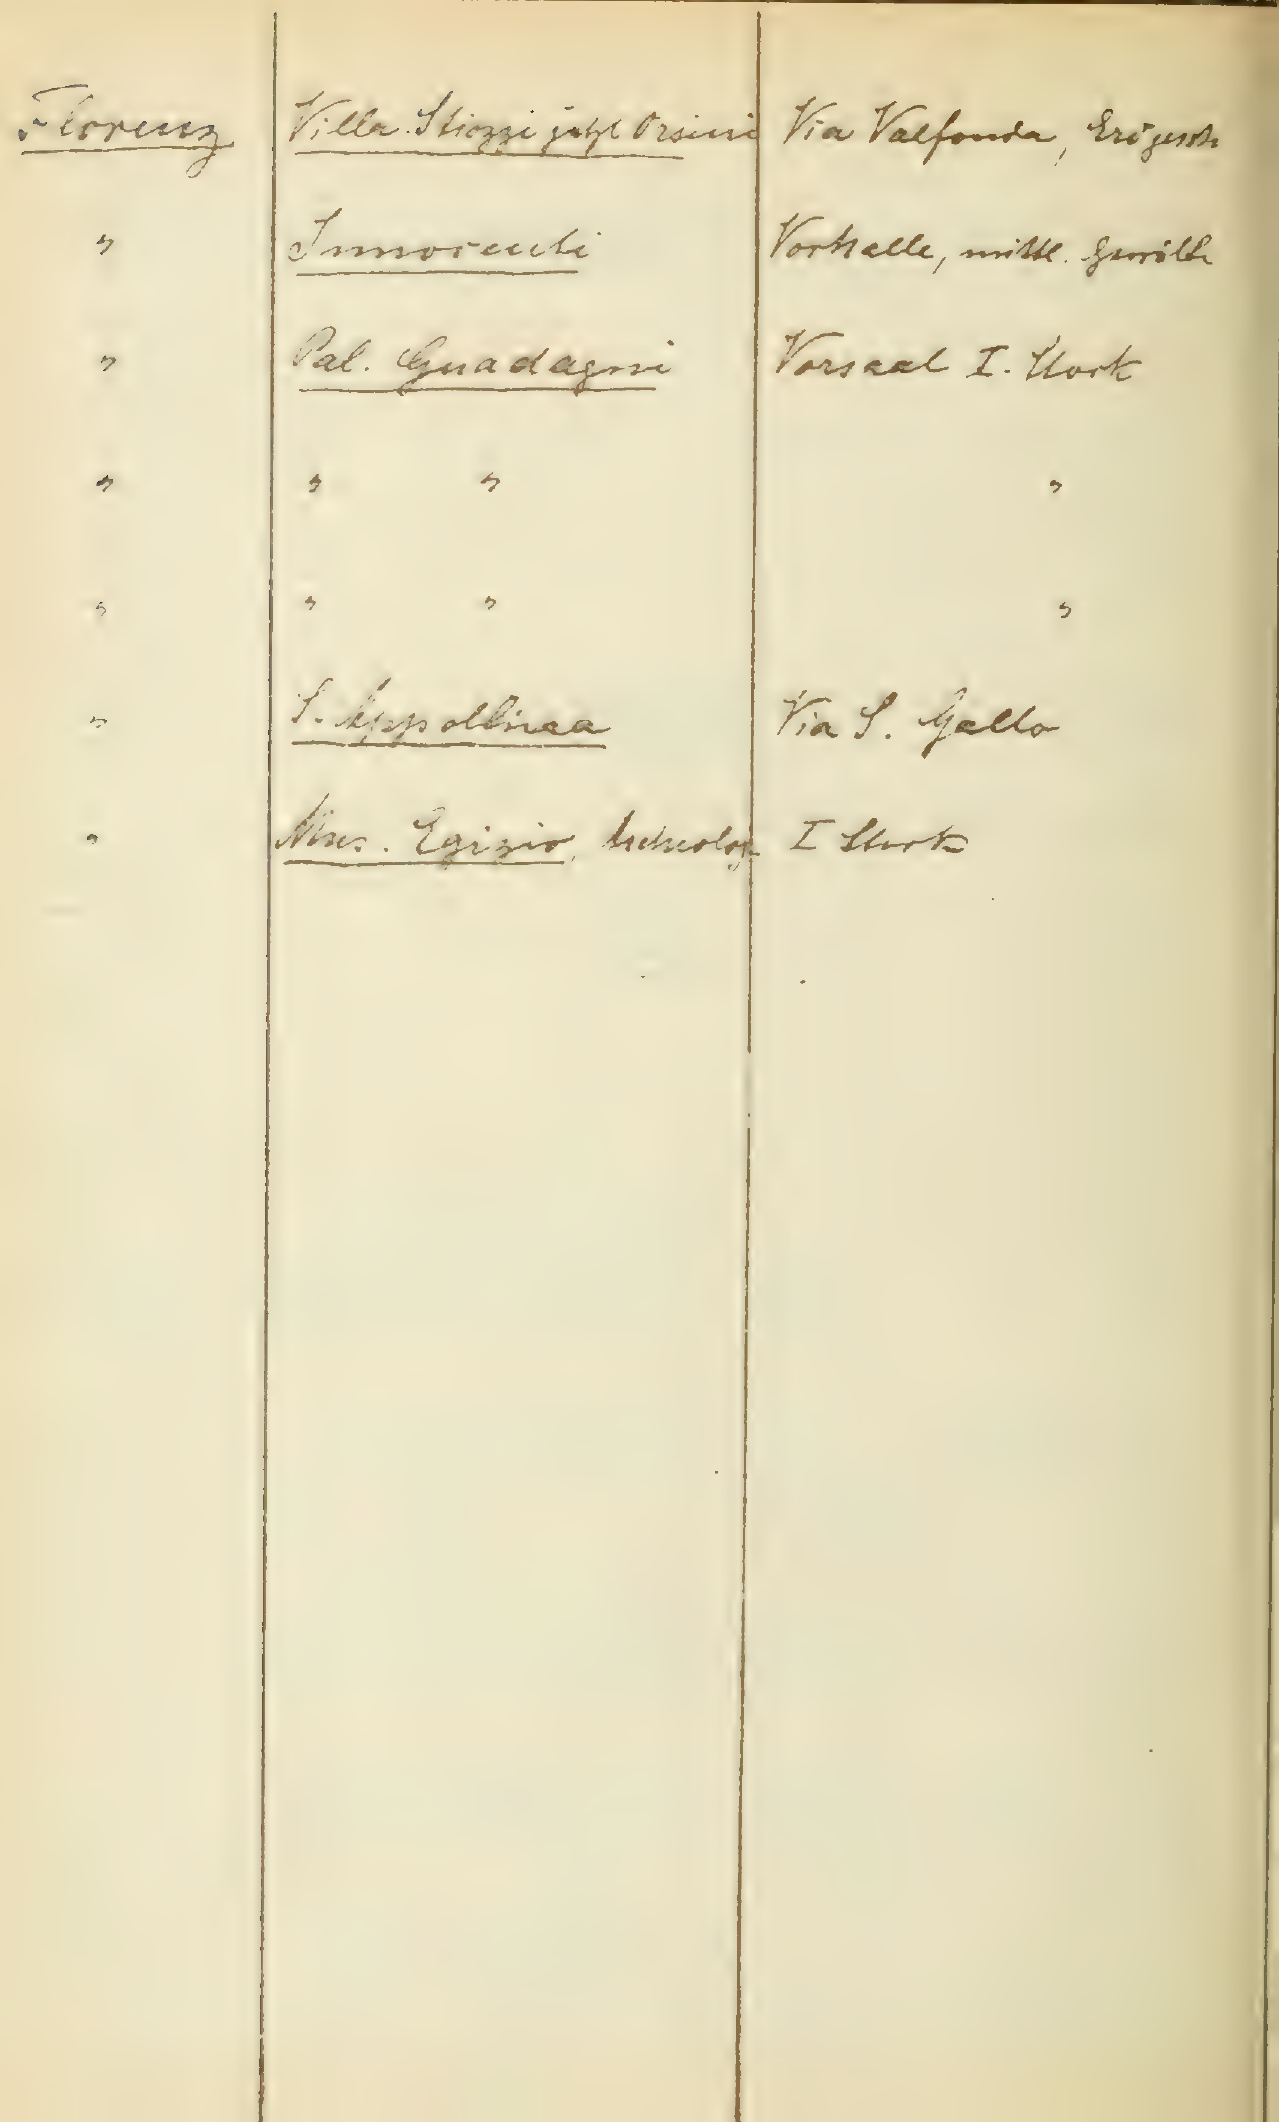 Florenz Villa Stiozzi jetzt Orsini Via Valfonda, Erdgesch
" Innocenti Vorhalle, mittl. Gewölbe
" Pal. Guadagni Vorsaal I. Stock
" " " "
" " " "
" S. Appollinaa Via S. Gallo
" Mus. Egizio, Archeolog I Stock